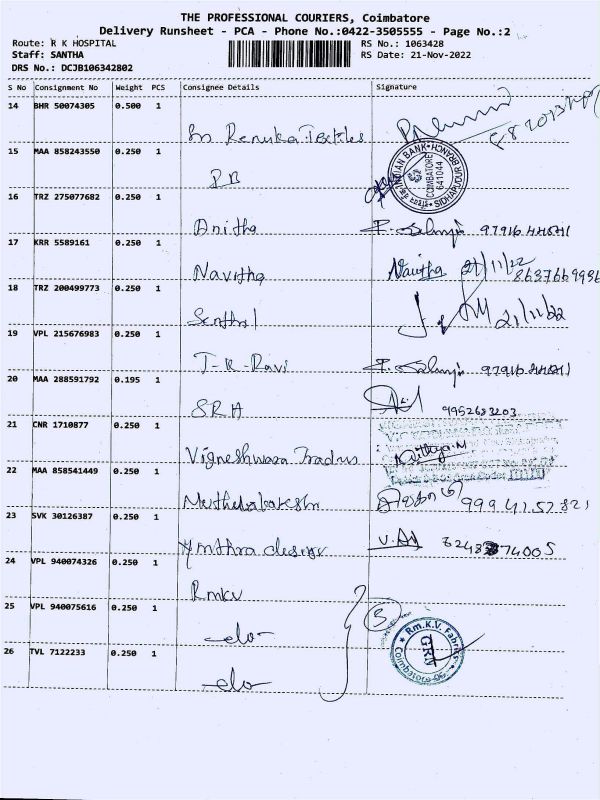 THE PROFESSIONAL COURIERS, Coimbatore
Delivery Runsheet - PCA - Phone No.:0422-3505555 - Page No.:2
Route: R K HOSPITAL
RS No.: 1063428
Staff: SANTHA
RS Date: 21-Nov-2022
DRS No.: DCJB106342802
S No Consignment No Weight PCS Consignee Details Signature
14 BHR 50074305 0.500 1
Sri Renuka Textiles
15 MAA 858243550 0.250 1
INDIAN BANK SIDHAPUDUR BRANCH COIMBATORE 641044
16 TRZ 275077682 0.250 1
Anitha
17 KRR 5589161 0.250 1
Navitha Navitha 21/11/22
18 TRZ 200499773 0.250 1
Senthil 21/11/22
19 VPL 215676983 0.250 1
T-K-Ravi
20 MAA 288591792 0.195 1
SRH 9952683203
21 CNR 1710877 0.250 1
Vigneshwara Nithya.M
22 MAA 858541449 0.250 1
23 SVK 30126387 0.250 1
design
24 VPL 940074326 0.250 1
Rmkv
25 VPL 940075616 0.250 1
-do- 3
Rm.K.V. Fabrics GRN Coimbatore
26 TVL 7122233 0.250 1
-do-